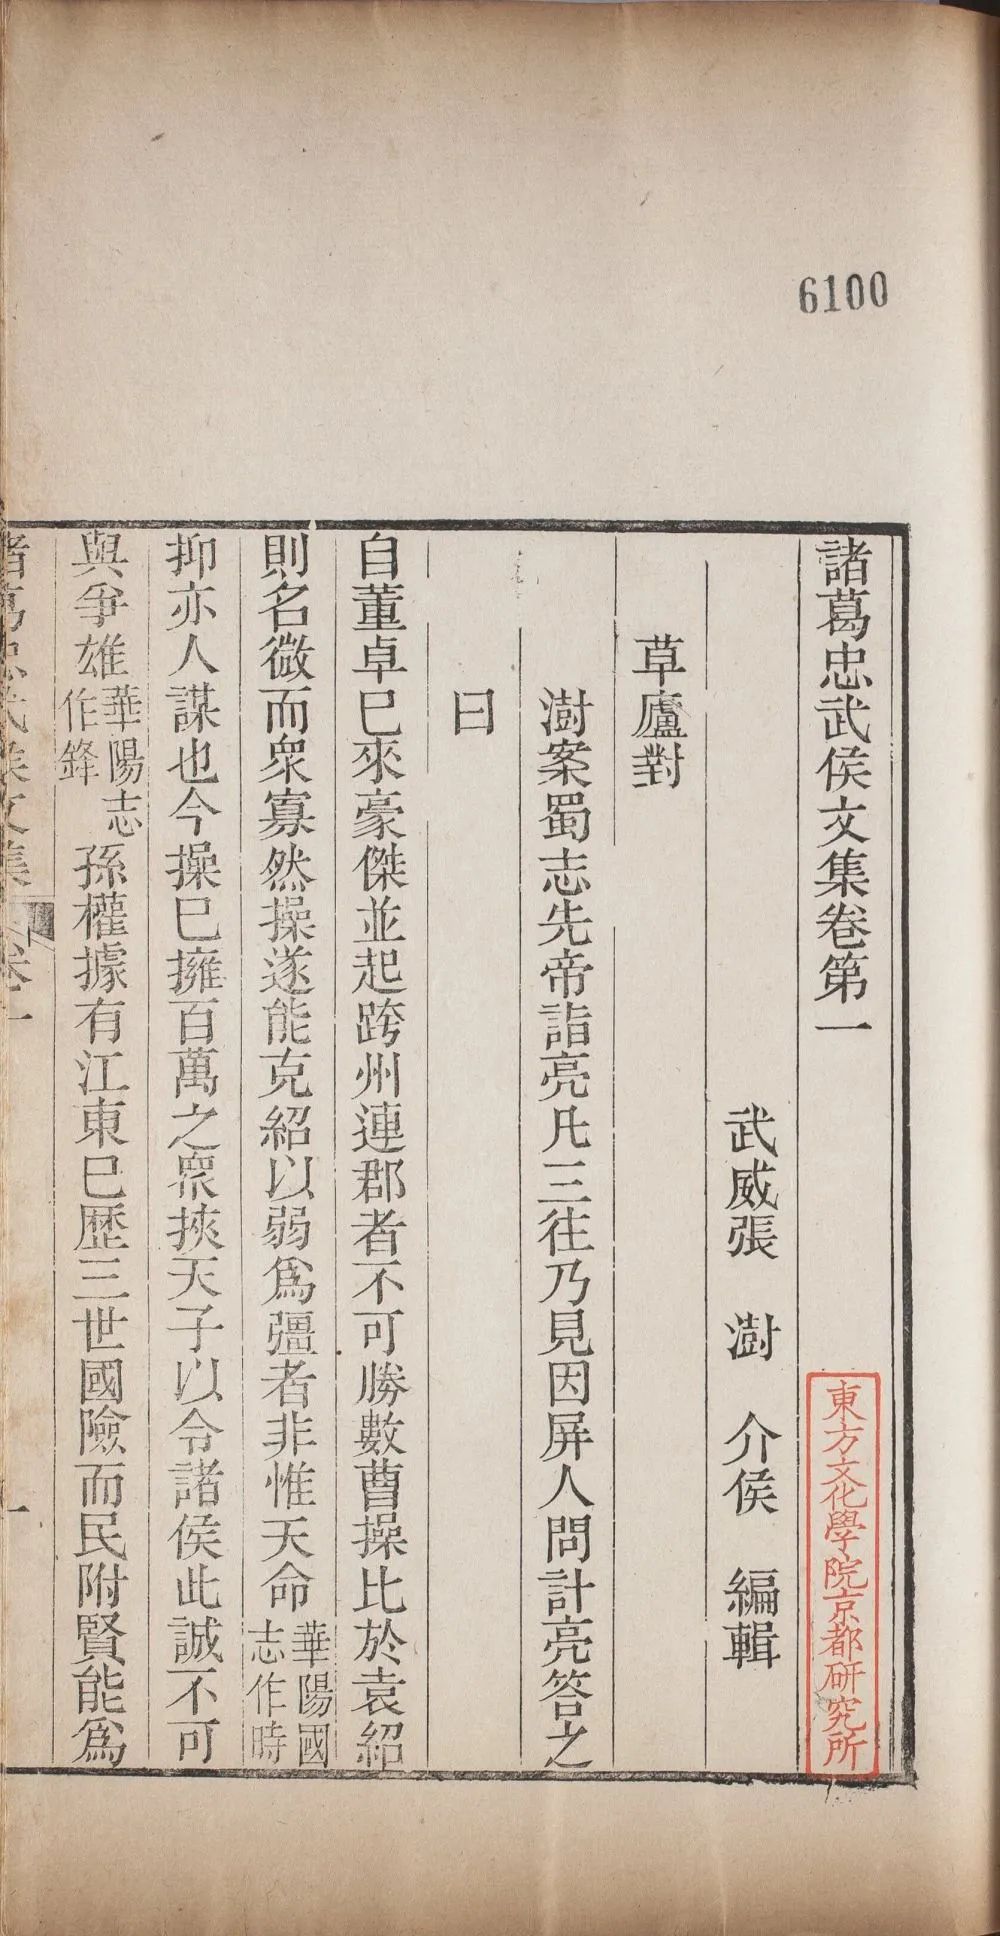 6100
諸葛忠武侯文集卷第一
東方文化學院京都研究所
武威張　澍　介侯　編輯
草廬對
澍案蜀志先帝詣亮凡三往乃見因屏人問計亮答之
曰
自董卓巳來豪傑並起跨州連郡者不可勝數曹操比於袁紹
則名微而衆寡然操遂能克紹以弱爲彊者非惟天命華陽國志作時
抑亦人謀也今操巳擁百萬之衆挾天子以令諸侯此誠不可
與爭雄華陽志作鋒孫權據有江東巳歷三世國險而民附賢能爲
諸葛忠武侯文集　卷一　一